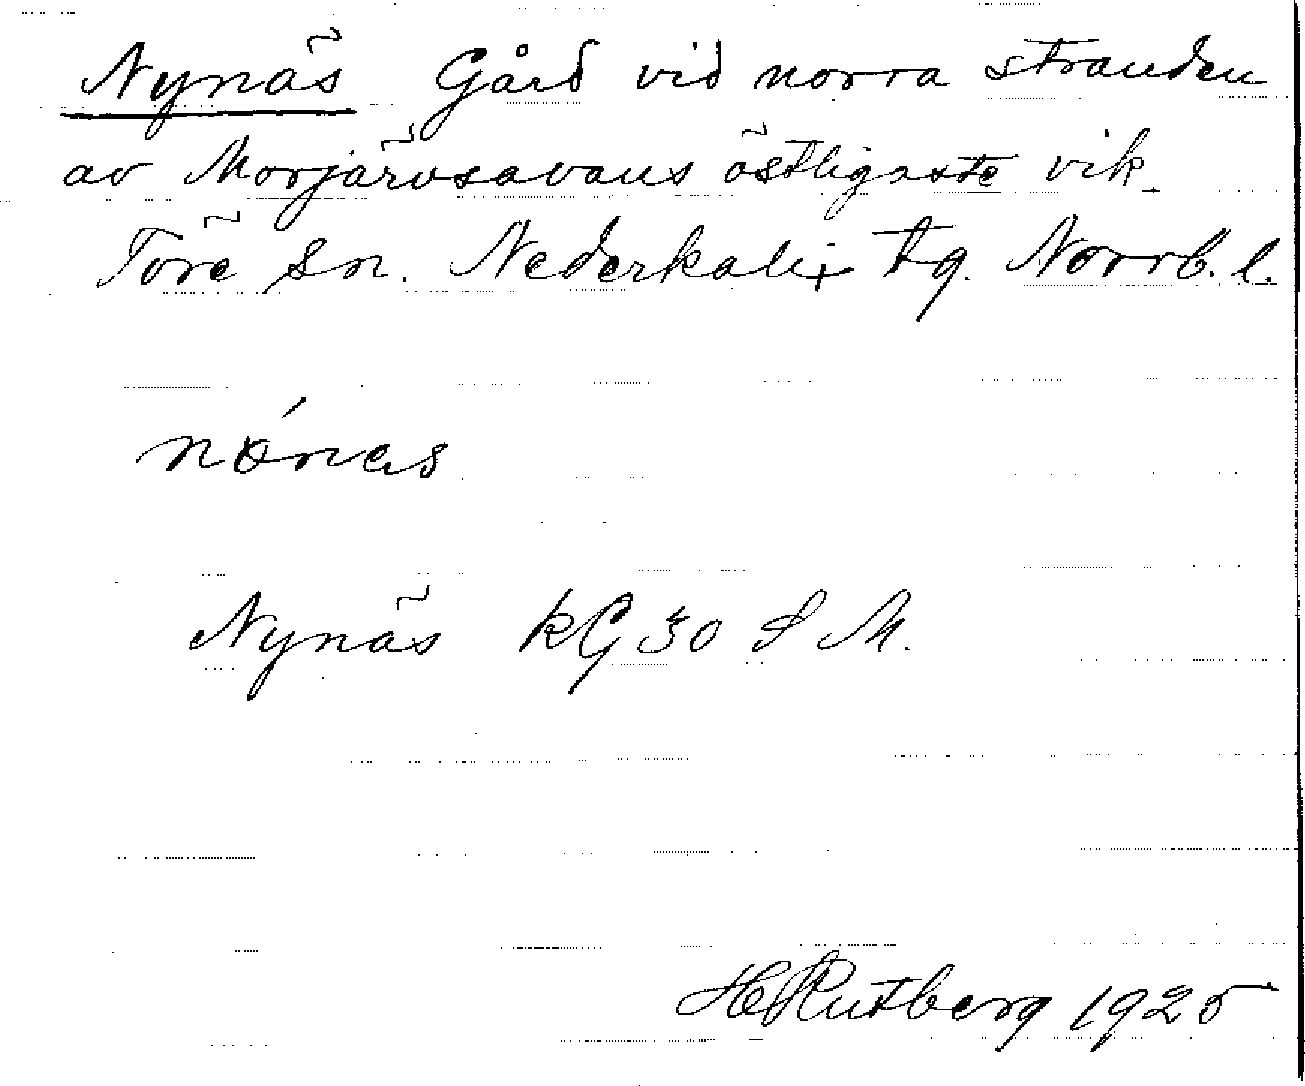 Nynäs Gård vid norra stranden
av Morjärvsavans östligaste vik.
Töre sn. Nederkalix tg. Norrb. l.
nónas
Nynäs kG 30 S M.
H Rutberg 1925